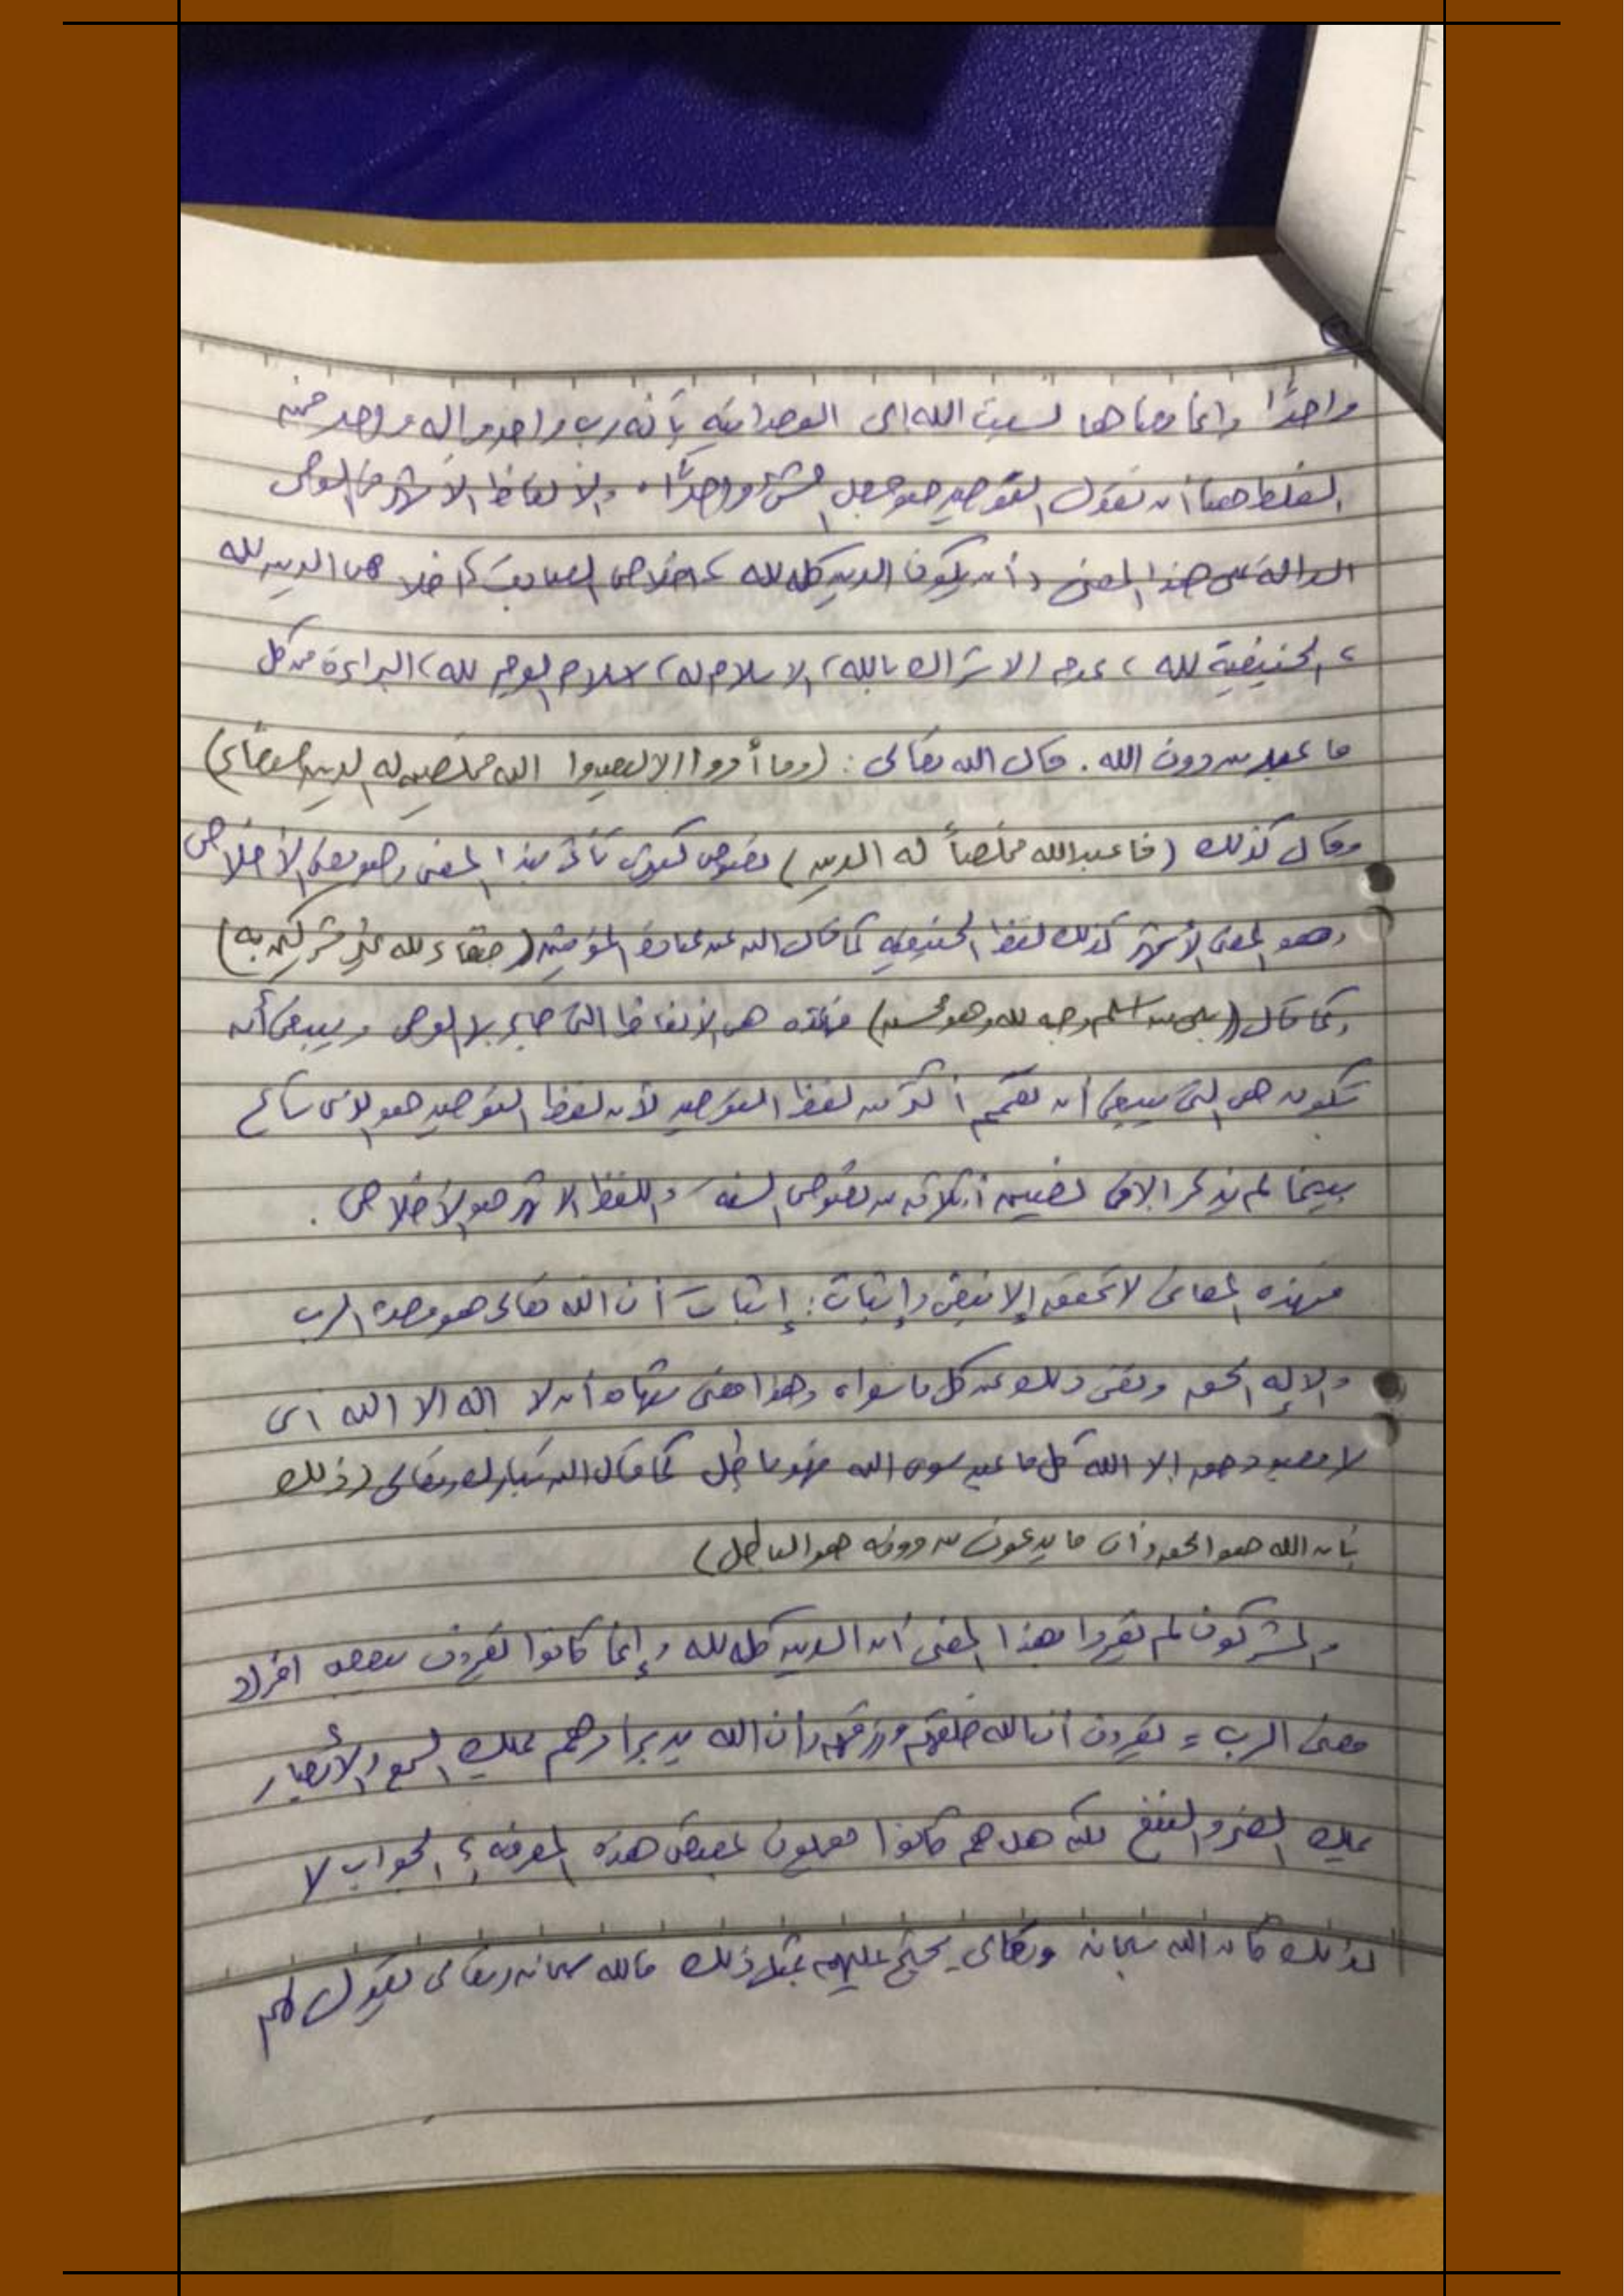 واحدًا وانما معناها نسبت الله الى الوحدانيه بأنه رب واحد واله واحد فمن
الغلط هنا أن نقول التوحيد هو جعل الشئ واحدًا. والألفاظ الأشهر في الوحى
الدالة على هذا المعنى، أن يكون الدين كله لله، اخلاص العبادة، اخلاص الدين لله
، الحنيفية لله، عدم الاشراك بالله، الاسلام له، اسلام الوجه لله، البراءة من كل
ما عبد من دون الله. قال الله تعالى: (وما أمروا الا ليعبدوا الله مخلصين له الدين حنفاء)
وقال كذلك (فاعبد الله مخلصاً له الدين) نصوص كثيرة تأتى بهذا المعنى وهو معنى الأخلاص
وهو المعنى الأشهر كذلك لفظ الحنيفيه كما قال الله عن عباده المؤمنين (حنفاء لله غير مشركين به)
وكما قال (بلى من اسلم وجهه لله وهو محسن) فهذه هى الألفاظ التى جاء بها الوحى وينبغى أن
تكون هى التى ينبغى أن تعمم أكثر من لفظ التوحيد لأن لفظ التوحيد هو الذى شائع
بينما لم يذكر الا فى نصين أو ثلاثه من نصوص السنه واللفظ الاشهر هو الأخلاص.
فهذه المعانى لا تحقق إلا بنفى وإثبات: إثبات أن الله تعالى هو وحده الرب
والإله الحق ونفى ذلك عن كل ما سواه وهذا معنى شهادة أن لا اله الا الله اى
لا معبود حق إلا الله كل ما عبد سوى الله فهو باطل كما قال الله تبارك وتعالى (ذلك
بأن الله هو الحق وأن ما يدعون من دونه هو الباطل)
والمشركون لم يقروا بهذا المعنى أن الدين كله لله وإنما كانوا يقرون ببعض افراد
معنى الرب = يقرون أن الله خلقهم ورزقهم وان الله يدبر امرهم يملك السمع والأبصار
يملك الضر والنفع لكن هل هم كانوا يعملون بمقتضى هذه المعرفه؟ الجواب لا
لذلك كان الله سبحانه وتعالى يحتج عليهم بمثل ذلك فالله سبحانه وتعالى يقول لهم